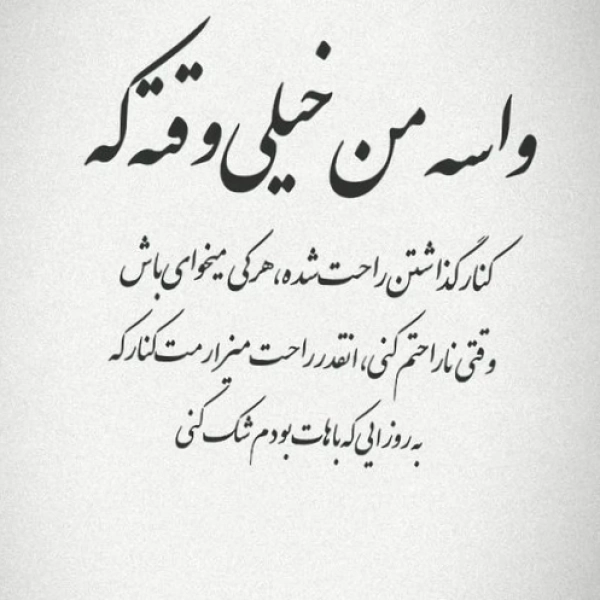 واسه من خیلی وقته که
کنار گذاشتن راحت شده، هر کی میخوای باش
وقتی ناراحتم کنی، انقدر راحت میزارمت کنار که
به روزایی که باهات بودم شک کنی